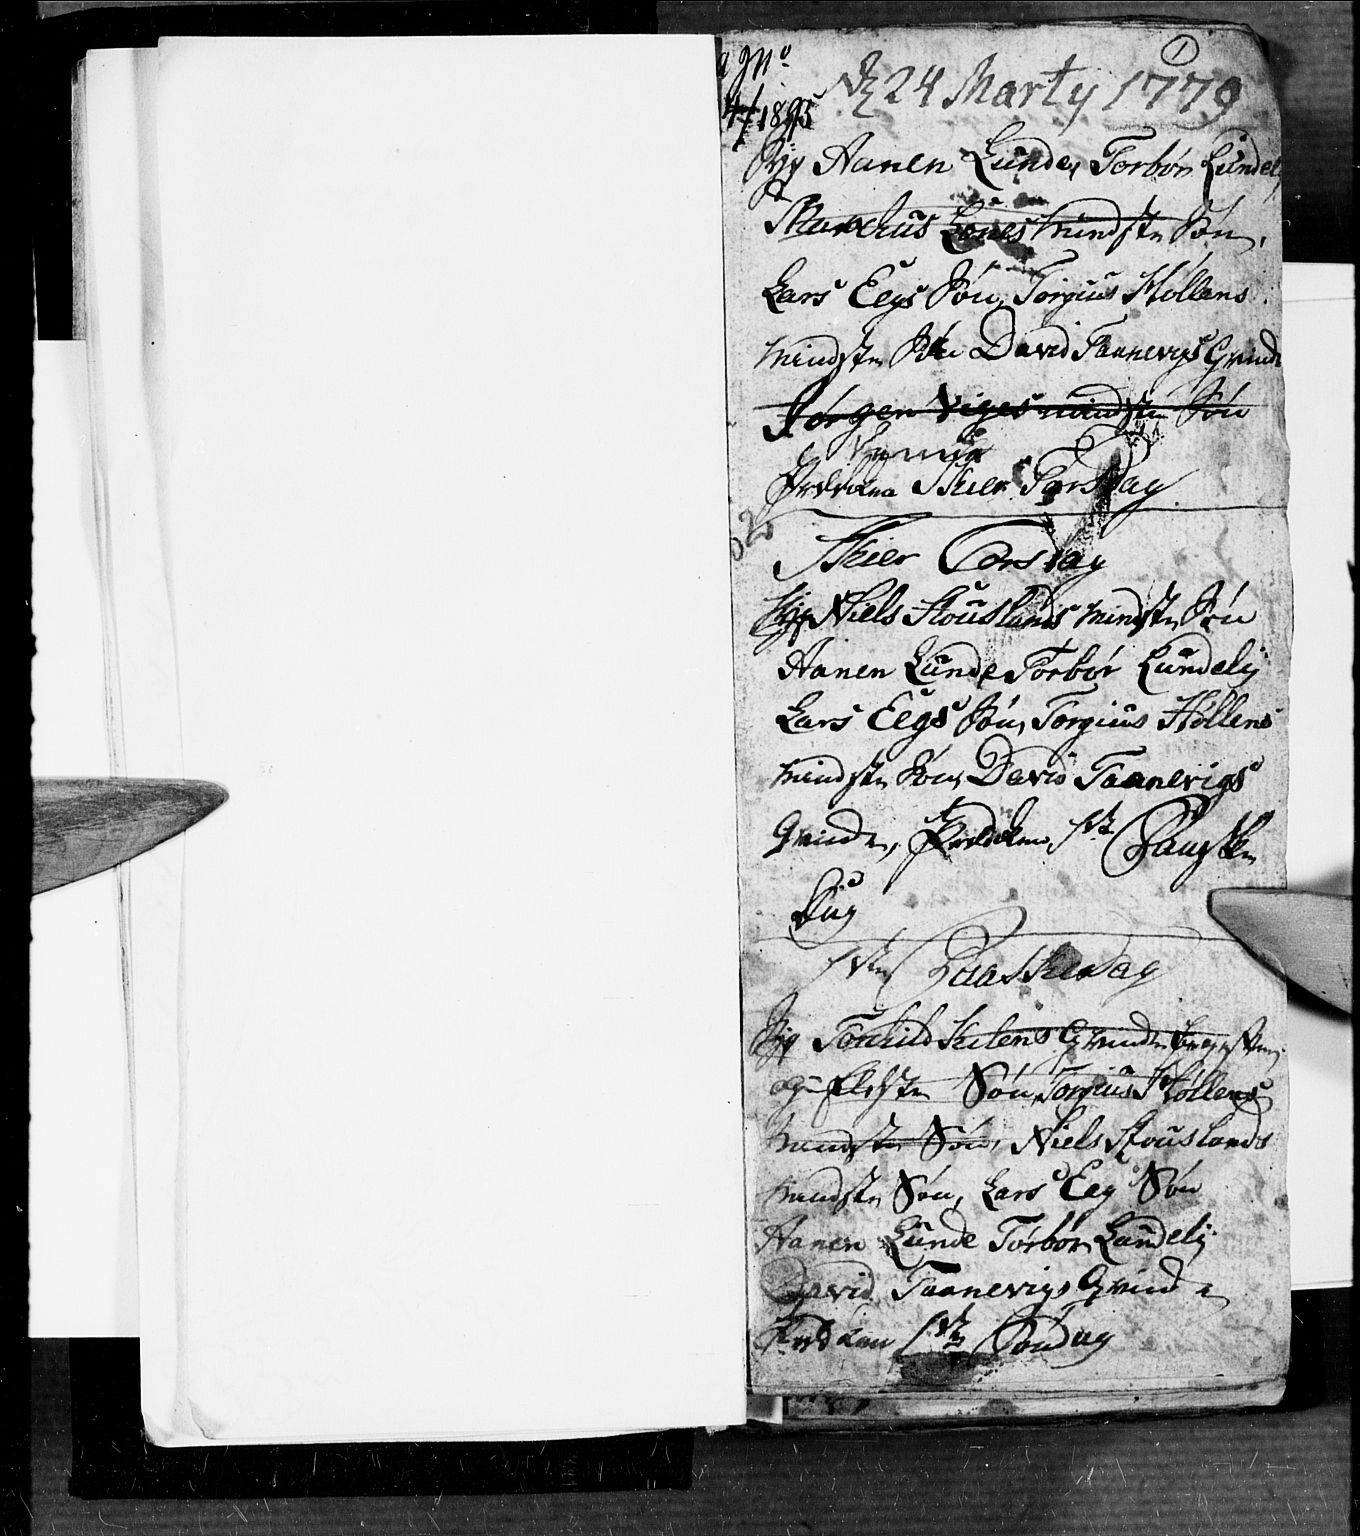 1
a No
4/1895
d 24 Marty 1779
Syg Aanen Lunde, Torbør Lundelj
Markus Lones mindste Søn,
Lars Eegs Søn, Torgius Høllens
mindste Søn David Taanevigs Qvinde
Jørgen Viges mindste Søn
Skier Torsdag
Skier Torsdag
Syg Niels Stouslands mindste Søn
Aanen Lunde Torbør Lundelj
Lars Eegs Søn, Torgius Høllens
mindste Søn, David Taanevigs
Qvinde, 1ste Paaske
Dag
1ste Paaske Dag
Syg Qvinde
og Eldste Søn, Torgius Høllens
mindste Søn, Niels Stouslands
mindste Søn, Lars Eeg Søn
Aanen Lunde Torbør Lundelj
David Taanevigs Qvinde
1ste Søndag